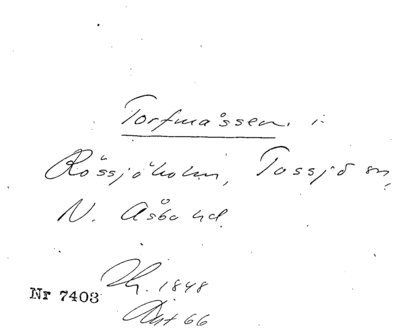 Torfmåssen i
Rössjöholm, Tossjö sn,
N. Åsbo hd.
1848
Nr 7403
Akt 66